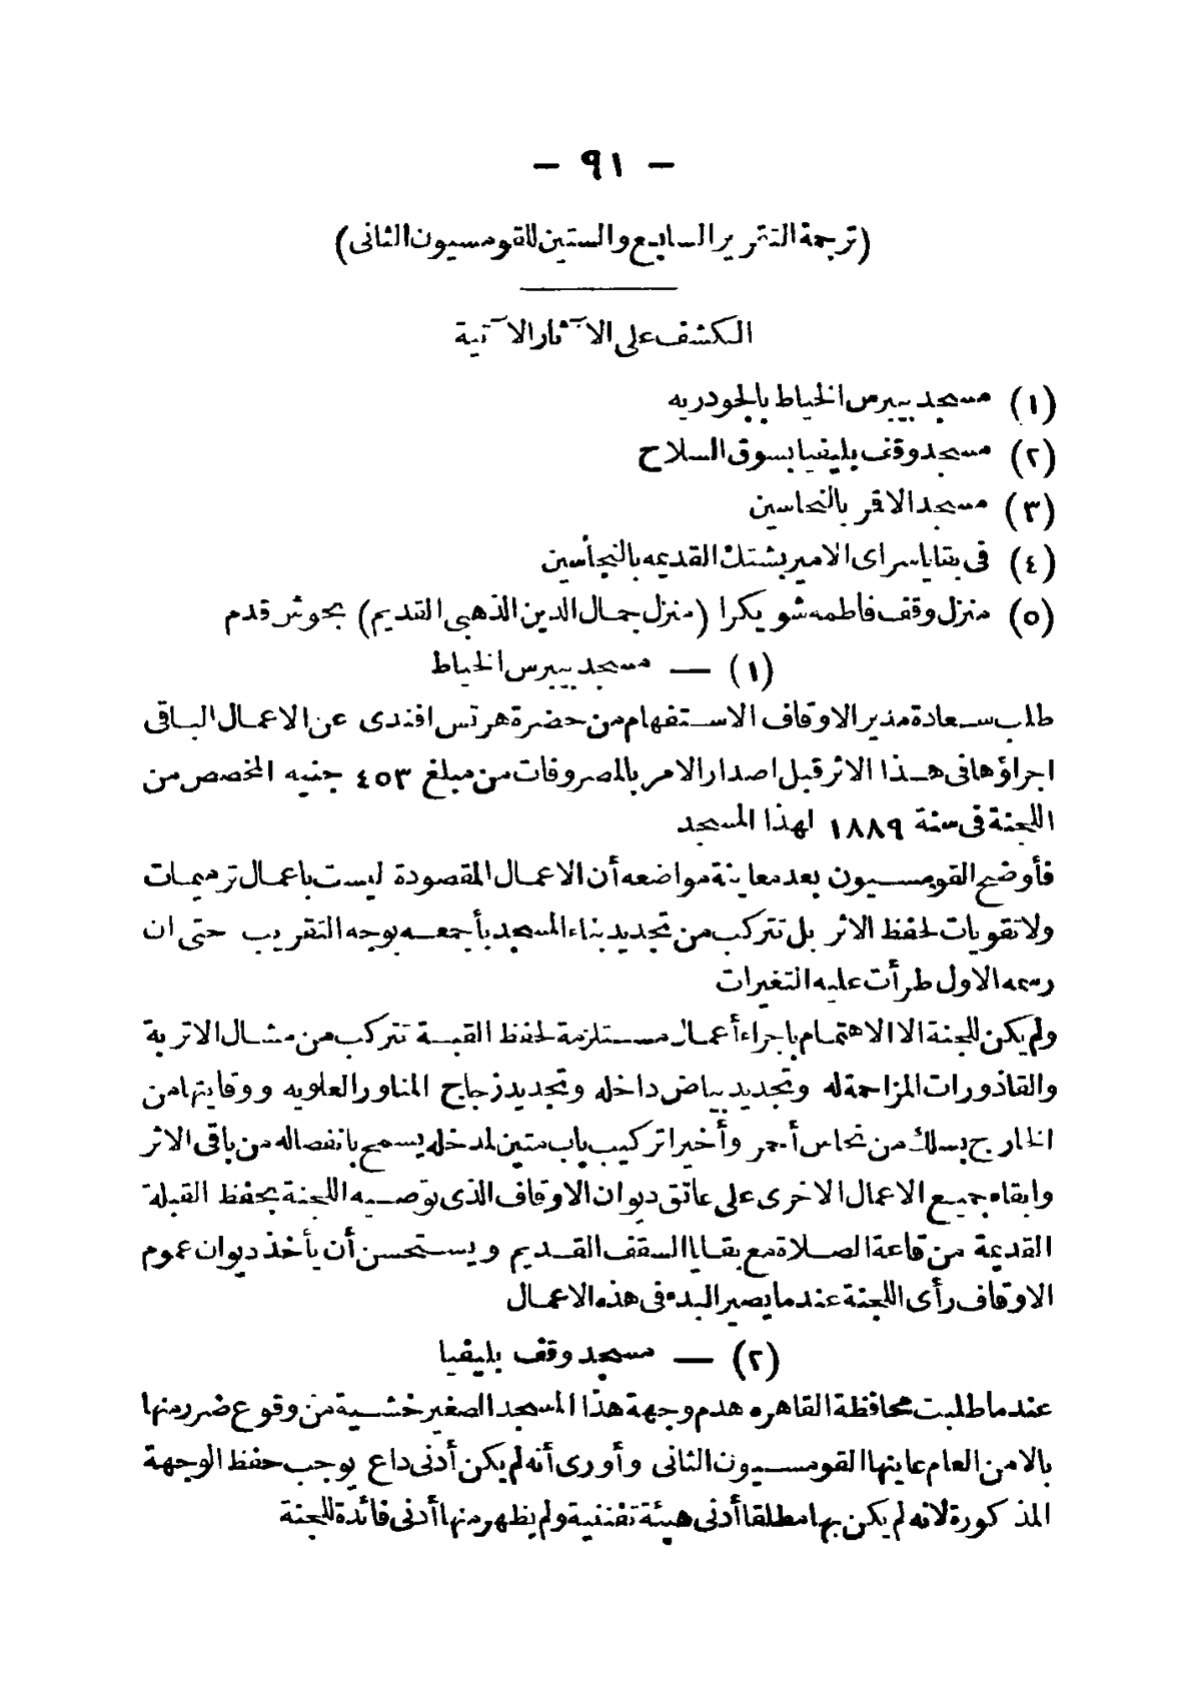 — ٩١ —
(ترجمة التقرير السابع والستين للقومسيون الثانى)
الكشف على الآثار الآتية
(١) مسجد بيبرس الخياط بالجودريه
(٢) مسجد وقف بليفيا بسوق السلاح
(٣) مسجد الاقر بالنحاسين
(٤) فى بقايا سراى الامير بشتك القديمه بالنحاسين
(٥) منزل وقف فاطمه شويكرا (منزل جمال الدين الذهبى القديم) بحوش قدم
(١) — مسجد بيبرس الخياط
طلب سعادة مدير الاوقاف الاستفهام من حضرة هرتس افندى عن الاعمال الباقى
اجراؤها فى هذا الاثر قبل اصدار الامر بالمصروفات من مبلغ ٤٥٣ جنيه المخصص من
اللجنة فى سنة ١٨٨٩ لهذا المسجد
فأوضح القومسيون بعد معاينة مواضعه أن الاعمال المقصودة ليست باعمال ترميمات
ولا تقويات لحفظ الاثر بل تتركب من تجديد بناء المسجد بأجمعه بوجه التقريب حتى ان
رسمه الاول طرأت عليه التغيرات
ولم يكن للجنة الا الاهتمام باجراء أعمال مستلزمة لحفظ القبة تتركب من مشال الاتربة
والقاذورات المزاحمة له وتجديد بياض داخله وتجديد زجاج المناور العلويه ووقايتها من
الخارج بسلك من نحاس أحمر وأخيرا تركيب باب متين لمدخله يسمح بانفصاله من باقى الاثر
وابقاء جميع الاعمال الاخرى على عاتق ديوان الاوقاف الذى توصيه اللجنة بحفظ القبلة
القديمة من قاعة الصلاة مع بقايا السقف القديم ويستحسن أن يأخذ ديوان عموم
الاوقاف رأى اللجنة عند ما يصير البدء فى هذه الاعمال
(٢) — مسجد وقف بليفيا
عند ما طلبت محافظة القاهره هدم وجهة هذا المسجد الصغير خشية من وقوع ضرر منها
بالامن العام عاينها القومسيون الثانى وأورى أنه لم يكن أدنى داع يوجب حفظ الوجهة
المذكورة لانه لم يكن بها مطلقا أدنى هيئة تفننية ولم يظهر منها أدنى فائدة للجنة